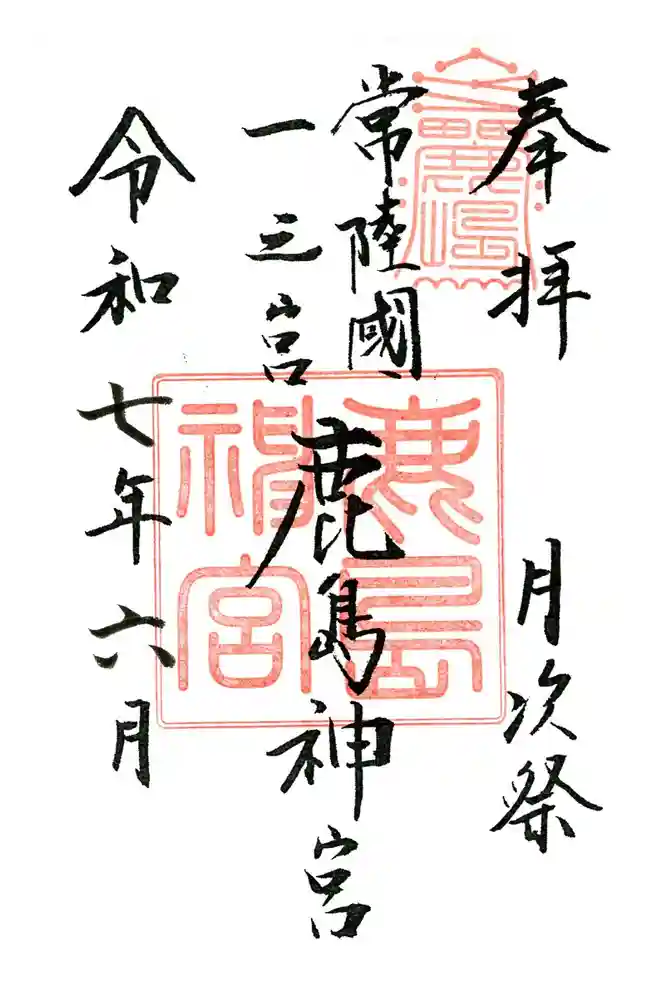 奉拝
月次祭
常陸國
一之宮
鹿島神宮
令和七年六月
鹿島
神宮